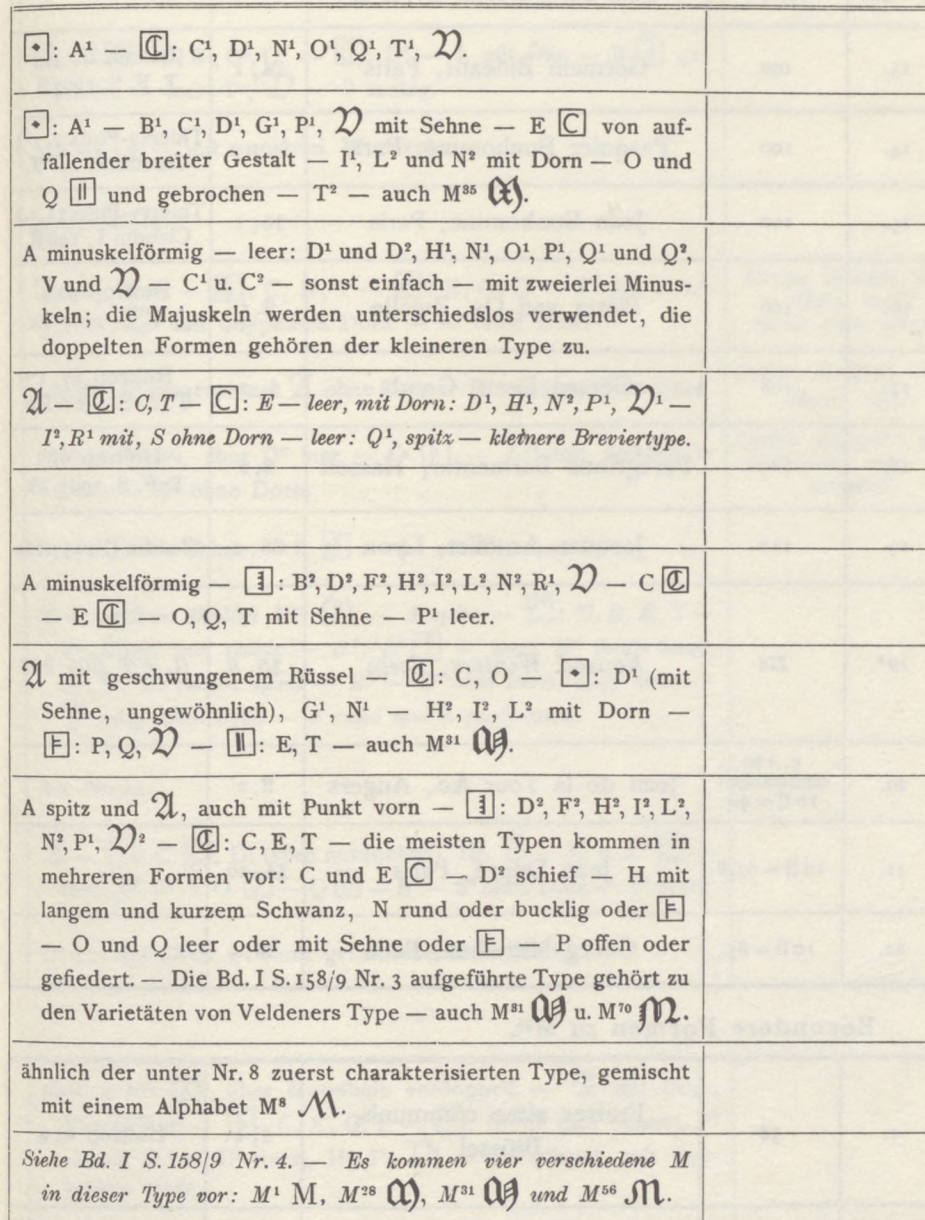 [◆]: A¹ — [ℭ]: C¹, D¹, N¹, O¹, Q¹, T¹, 𝔙.
[◆]: A¹ — B¹, C¹, D¹, G¹, P¹, 𝔙 mit Sehne — E [C] von auf-
fallender breiter Gestalt — I¹, L² und N² mit Dorn — O und
Q [||] und gebrochen — T² — auch M³⁵ 𝔐.
A minuskelförmig — leer: D¹ und D², H¹, N¹, O¹, P¹, Q¹ und Q²,
V und 𝔙 — C¹ u. C² — sonst einfach — mit zweierlei Minus-
keln; die Majuskeln werden unterschiedslos verwendet, die
doppelten Formen gehören der kleineren Type zu.
𝔄 — [ℭ]: C, T — [C]: E — leer, mit Dorn: D¹, H¹, N², P¹, 𝔙¹ —
I², R¹ mit, S ohne Dorn — leer: Q¹, spitz — kleinere Breviertype.
A minuskelförmig — [∃]: B², D², F², H², I², L², N², R¹, 𝔙 — C [ℭ]
— E [ℭ] — O, Q, T mit Sehne — P¹ leer.
𝔄 mit geschwungenem Rüssel — [ℭ]: C, O — [◆]: D¹ (mit
Sehne, ungewöhnlich), G¹, N¹ — H², I², L² mit Dorn —
[F]: P, Q, 𝔙 — [||]: E, T — auch M³¹ 𝔐.
A spitz und 𝔄, auch mit Punkt vorn — [∃]: D², F², H², I², L²,
N², P¹, 𝔙² — [ℭ]: C, E, T — die meisten Typen kommen in
mehreren Formen vor: C und E [C] — D² schief — H mit
langem und kurzem Schwanz, N rund oder bucklig oder [F]
— O und Q leer oder mit Sehne oder [F] — P offen oder
gefiedert. — Die Bd. I S. 158/9 Nr. 3 aufgeführte Type gehört zu
den Varietäten von Veldeners Type — auch M³¹ 𝔐 u. M⁷⁰ 𝔐.
ähnlich der unter Nr. 8 zuerst charakterisierten Type, gemischt
mit einem Alphabet M⁸ ℳ.
Siehe Bd. I S. 158/9 Nr. 4. — Es kommen vier verschiedene M
in dieser Type vor: M¹ M, M²⁸ 𝔐, M³¹ 𝔐 und M⁵⁶ 𝔐.